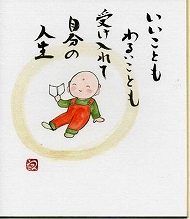 いいことも
わるいことも
受け入れて
自分の
人生